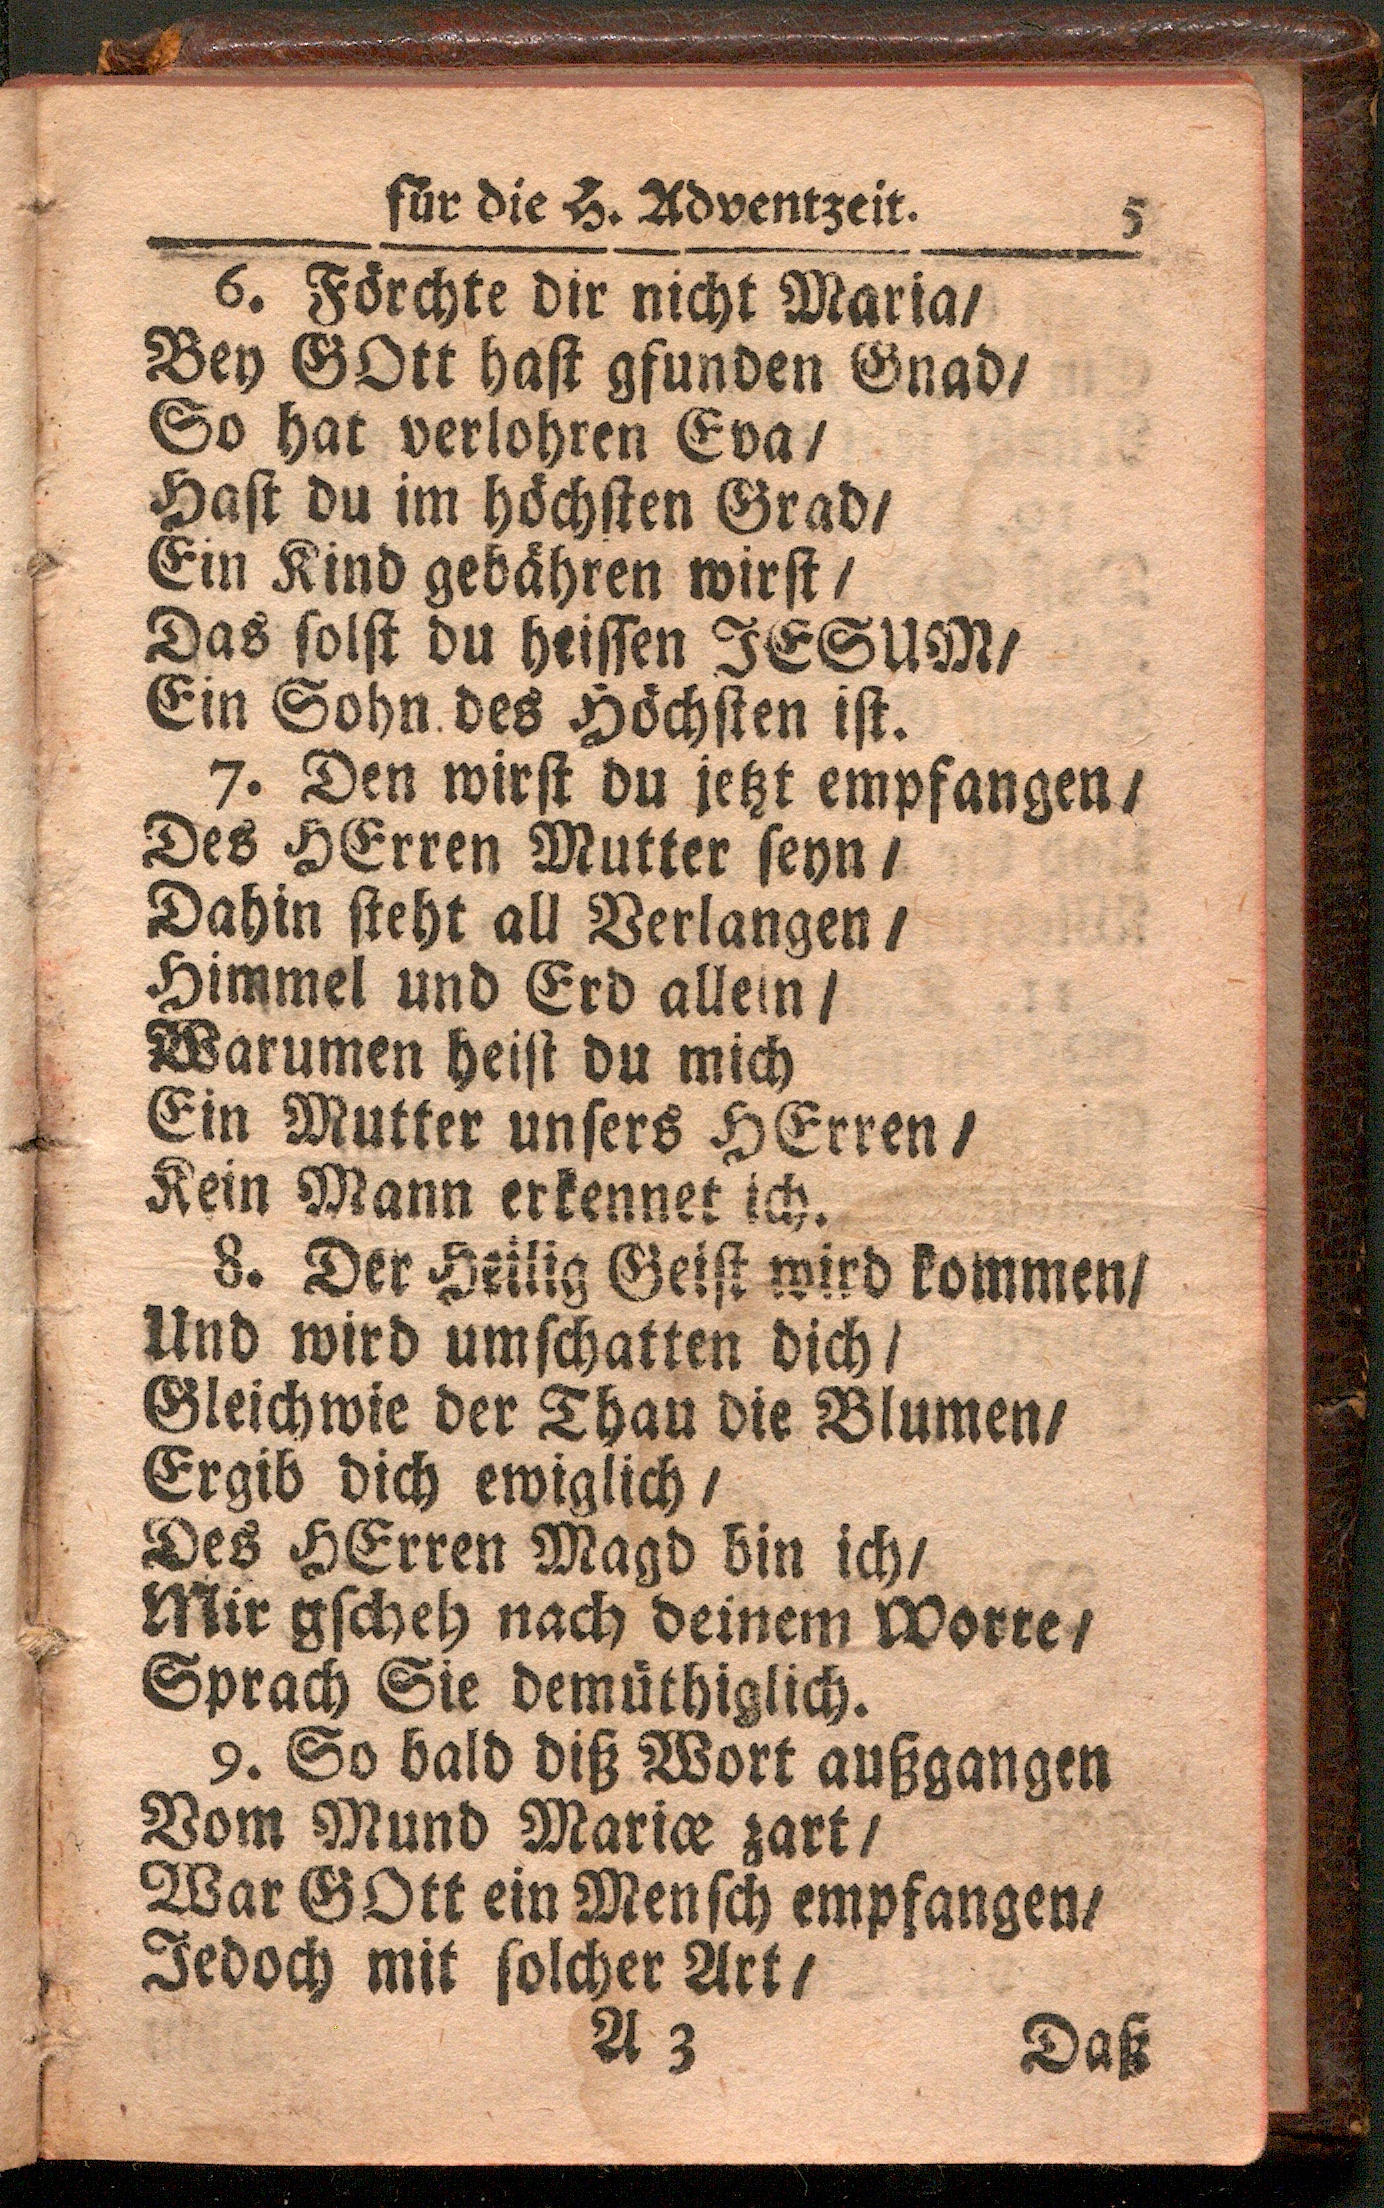 für die H. Adventzeit. 5
6. Förchte dir nicht Maria/
Bey GOtt hast gfunden Gnad/
So hat verlohren Eva/
Hast du im höchsten Grad/
Ein Kind gebähren wirst/
Das solst du heissen JESUM/
Ein Sohn des Höchsten ist.
7. Den wirst du jetzt empfangen/
Des HErren Mutter seyn/
Dahin steht all Verlangen/
Himmel und Erd allein/
Warumen heist du mich
Ein Mutter unsers HErren/
Kein Mann erkennet ich.
8. Der Heilig Geist wird kommen/
Und wird umschatten dich/
Gleichwie der Thau die Blumen/
Ergib dich ewiglich/
Des HErren Magd bin ich/
Mir gscheh nach deinem Worte/
Sprach Sie demüthiglich.
9. So bald diß Wort außgangen
Vom Mund Mariæ zart/
War GOtt ein Mensch empfangen/
Jedoch mit solcher Art/
A 3 Daß